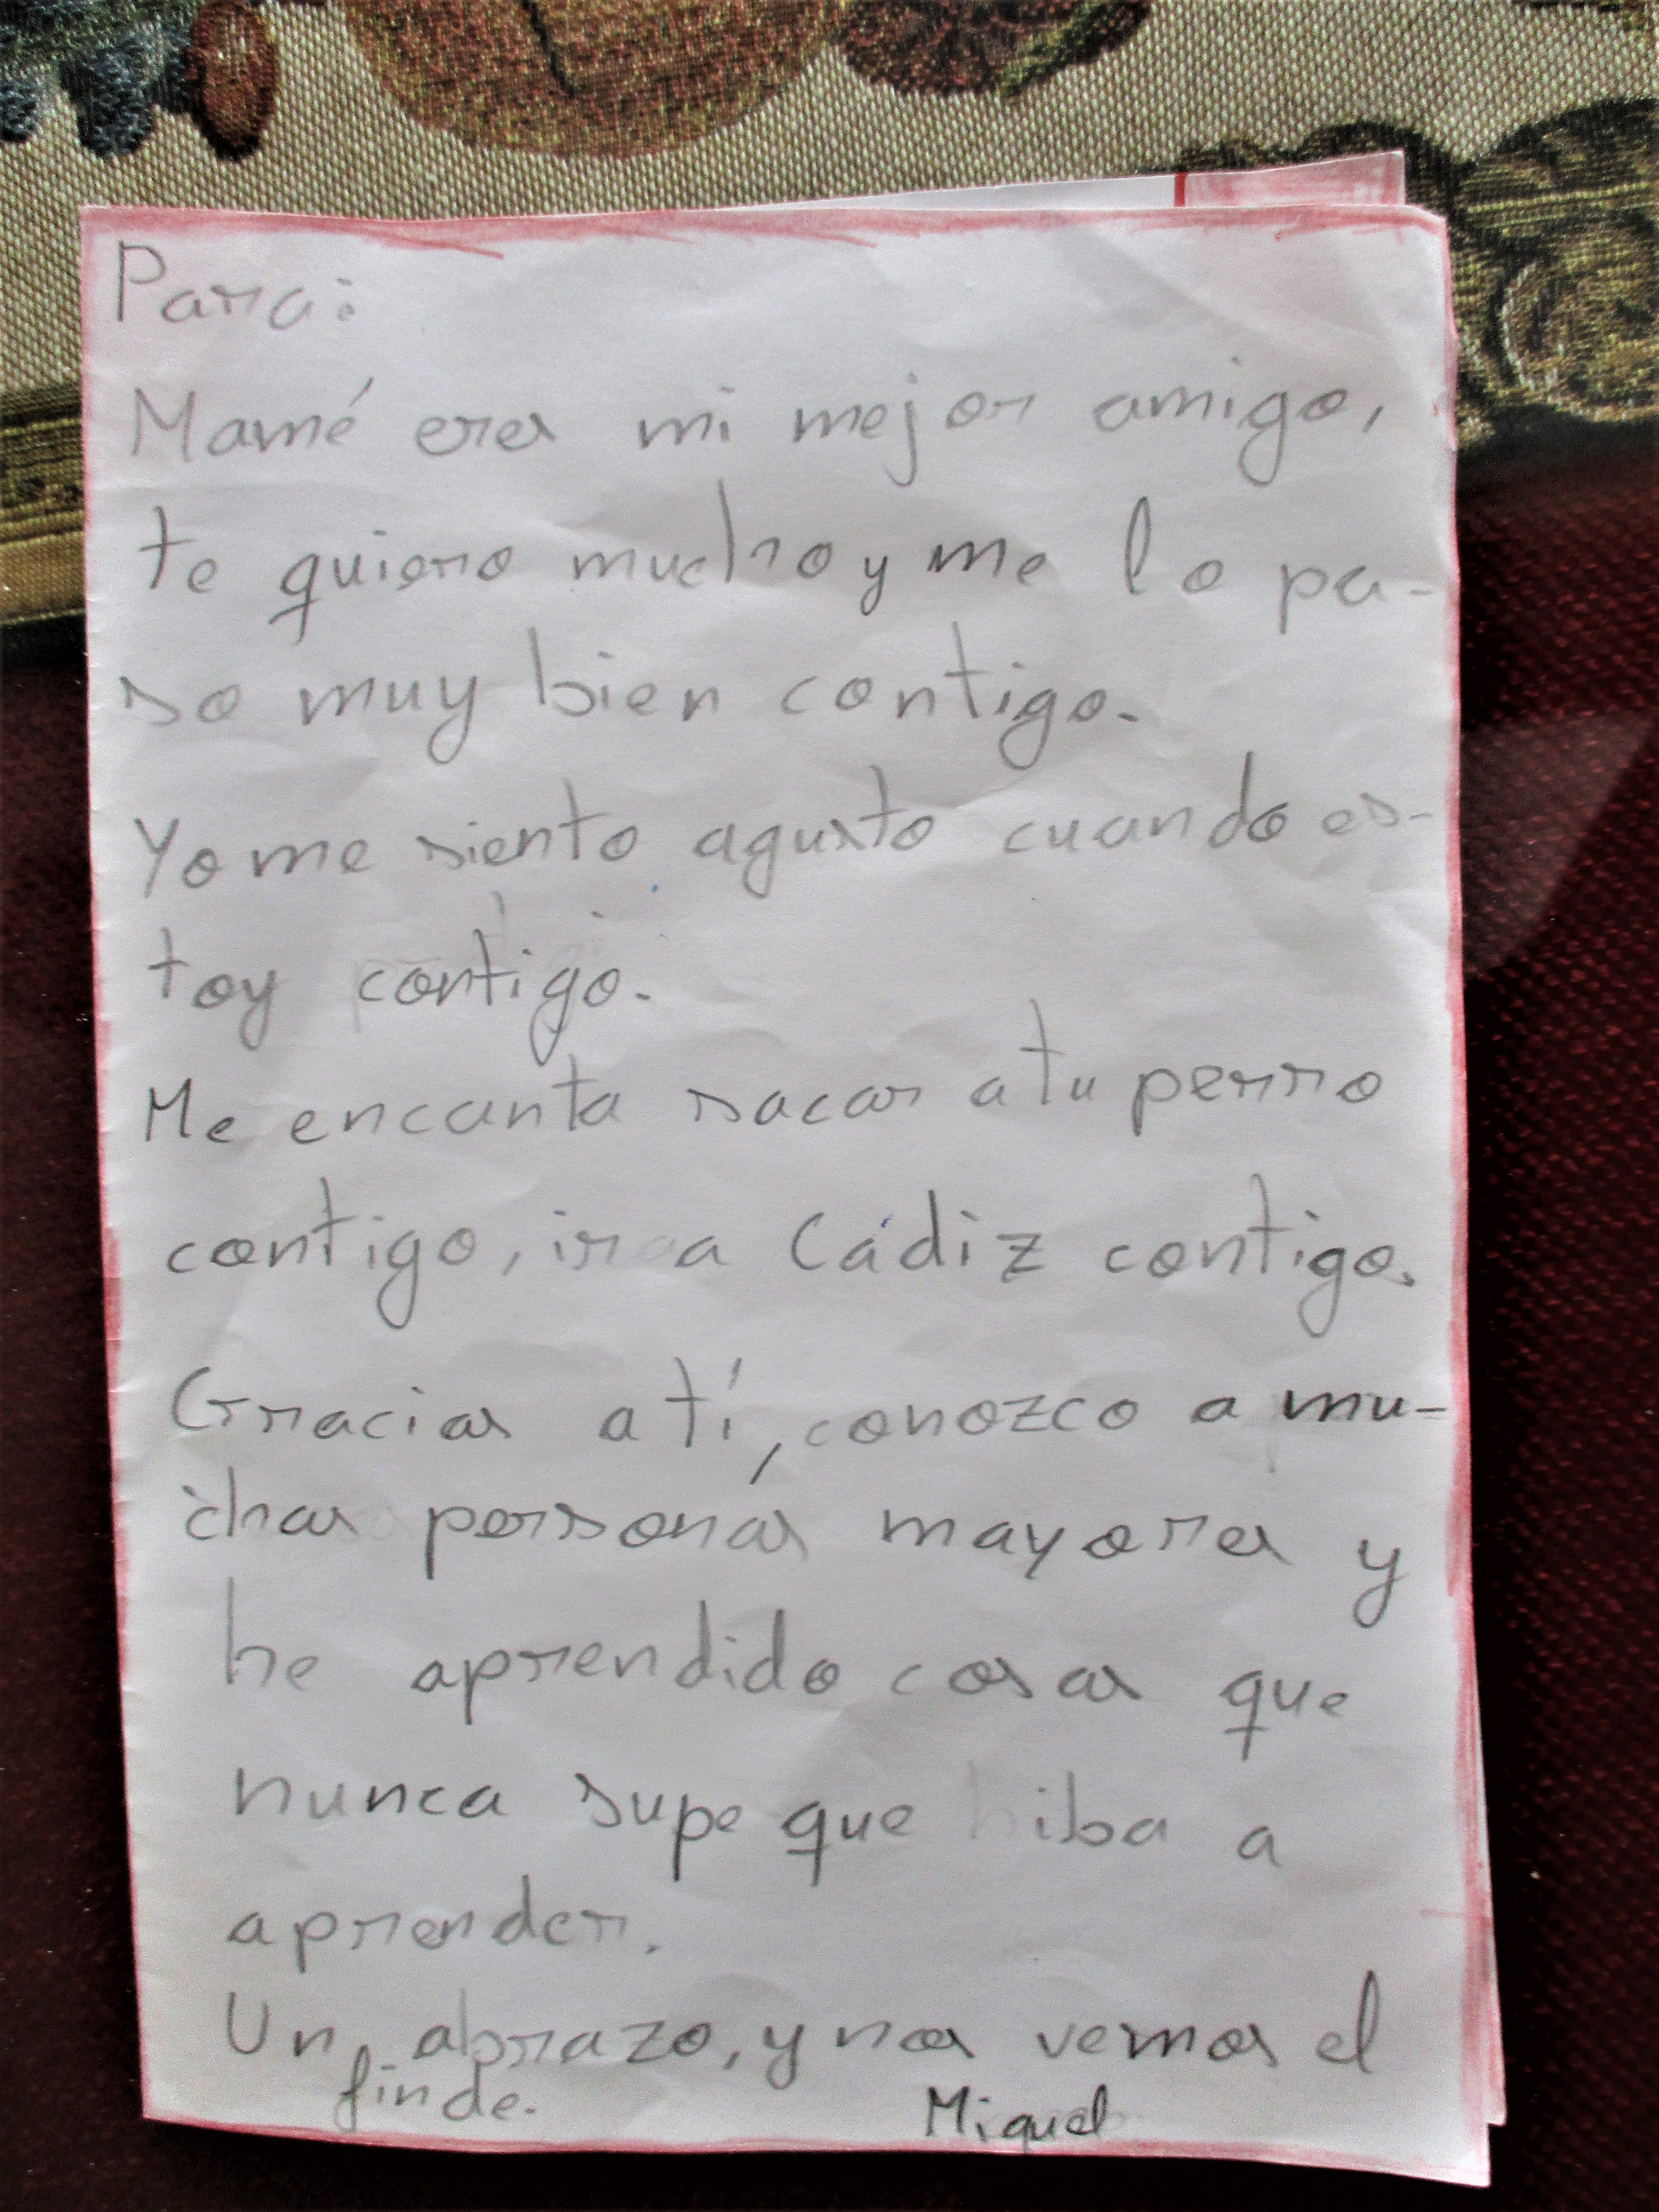 Para:
Mamé eres mi mejor amigo,
te quiero mucho y me lo pa-
so muy bien contigo.
Yo me siento agusto cuando es-
toy contigo.
Me encanta sacar a tu perro
contigo, ir a Cádiz contigo.
Gracias a tí, conozco a mu-
chas personas mayores y
he aprendido cosas que
nunca supe que iba a
aprender.
Un abrazo, y nos vemos el
finde.
Miguel